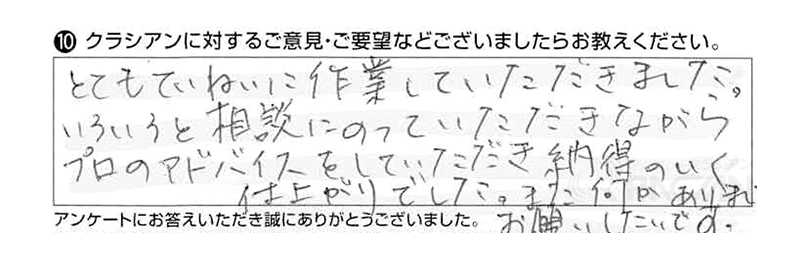 ❿ クラシアンに対するご意見・ご要望などございましたらお教えください。
とてもていねいに作業していただきました。
いろいろと相談にのっていただきながら
プロのアドバイスをしていただき納得のいく
仕上がりでした。また何かありまれ
アンケートにお答えいただき誠にありがとうございました。
お願いしたいです。